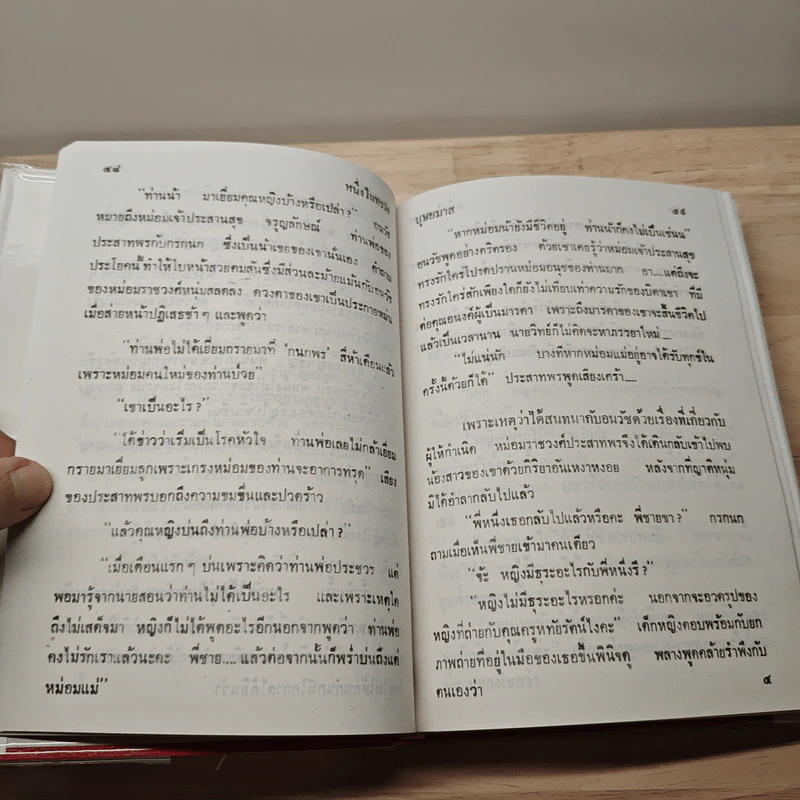 ๕๘
หนึ่งในทรวง
“ท่านน้า มาเยี่ยมคุณหญิงบ้างหรือเปล่า?” อนวัช
หมายถึงหม่อมเจ้าประสานสุข จรูญลักษณ์ ท่านพ่อของ
ประสาทพรกับกรกนก ซึ่งเป็นน้าเขยของเขานั่นเอง คำถาม
ประโยคนี้ ทำให้ใบหน้าสวยคมสันซึ่งมีส่วนละม้ายแม้นกับอนวัช
ของหม่อมราชวงศ์หนุ่มสลดลง ดวงตาของเขาเป็นประกายหม่น
เมื่อส่ายหน้าปฏิเสธช้า ๆ และพูดว่า
“ท่านพ่อไม่ได้เยี่ยมกรายมาที่ ‘กนกพร’ สี่ห้าเดือนแล้ว
เพราะหม่อมคนใหม่ของท่านป่วย”
“เขาเป็นอะไร ?”
“ได้ข่าวว่าเริ่มเป็นโรคหัวใจ ท่านพ่อเลยไม่กล้าเยี่ยม
กรายมาเยี่ยมลูกเพราะเกรงหม่อมของท่านจะอาการทรุด” เสียง
ของประสาทพรบอกถึงความขมขื่นและปวดร้าว
“แล้วคุณหญิงบ่นถึงท่านพ่อบ้างหรือเปล่า ?”
“เมื่อเดือนแรก ๆ บ่นเพราะคิดว่าท่านพ่อประชวร แต่
พอมารู้จากนายสอนว่าท่านไม่ได้เป็นอะไร และเพราะเหตุใด
ถึงไม่เสด็จมา หญิงก็ไม่ได้พูดอะไรอีกนอกจากพูดว่า ท่านพ่อ
คงไม่รักเราแล้วนะคะ พี่ชาย.... แล้วต่อจากนั้นก็พร่ำบ่นถึงแต่
หม่อมแม่”
บุษยมาส
๕๙
“หากหม่อมน้ายังมีชีวิตอยู่ ท่านน้าก็คงไม่เป็นเช่นนี้”
อนวัชพูดอย่างตริตรอง ด้วยเขาเคยรู้ว่าหม่อมเจ้าประสานสุข
ทรงรักใคร่โปรดปรานหม่อมอนุชของท่านมาก อา....แต่ถึงจะ
ทรงรักใคร่สักเพียงใดก็ยังไม่เทียบเท่าความรักของบิดาเขา ที่มี
ต่อคุณอนงค์ผู้เป็นมารดา เพราะถึงมารดาของเขาจะสิ้นชีวิตไป
แล้วเป็นเวลานาน นายวิทย์ก็ไม่คิดจะหาภรรยาใหม่....
“ไม่แน่นัก บางทีหากหม่อมแม่อยู่อาจได้รับทุกข์ใน
ครั้งนี้ด้วยก็ได้” ประสาทพรพูดเสียงเศร้า....
เพราะเหตุว่าได้สนทนากับอนวัชด้วยเรื่องที่เกี่ยวกับ
ผู้ให้กำเนิด หม่อมราชวงศ์ประสาทพรจึงได้เดินกลับเข้าไปพบ
น้องสาวของเขาด้วยกิริยาอันเหงาหงอย หลังจากที่ญาติหนุ่ม
มิได้อำลากลับไปแล้ว
“พี่หนึ่งเธอกลับไปแล้วหรือคะ พี่ชายขา ?” กรกนก
ถามเมื่อเห็นพี่ชายเข้ามาคนเดียว
“จ้ะ หญิงมีธุระอะไรกับพี่หนึ่งรึ ?”
“หญิงไม่มีธุระอะไรหรอกค่ะ นอกจากจะอวดรูปของ
หญิงที่ถ่ายกับคุณครูหทัยรัตน์ไงคะ” เด็กหญิงตอบพร้อมกับยก
ภาพถ่ายที่อยู่ในมือของเธอขึ้นพินิจดู พลางพูดคล้ายรำพึงกับ
ตนเองว่า
๔